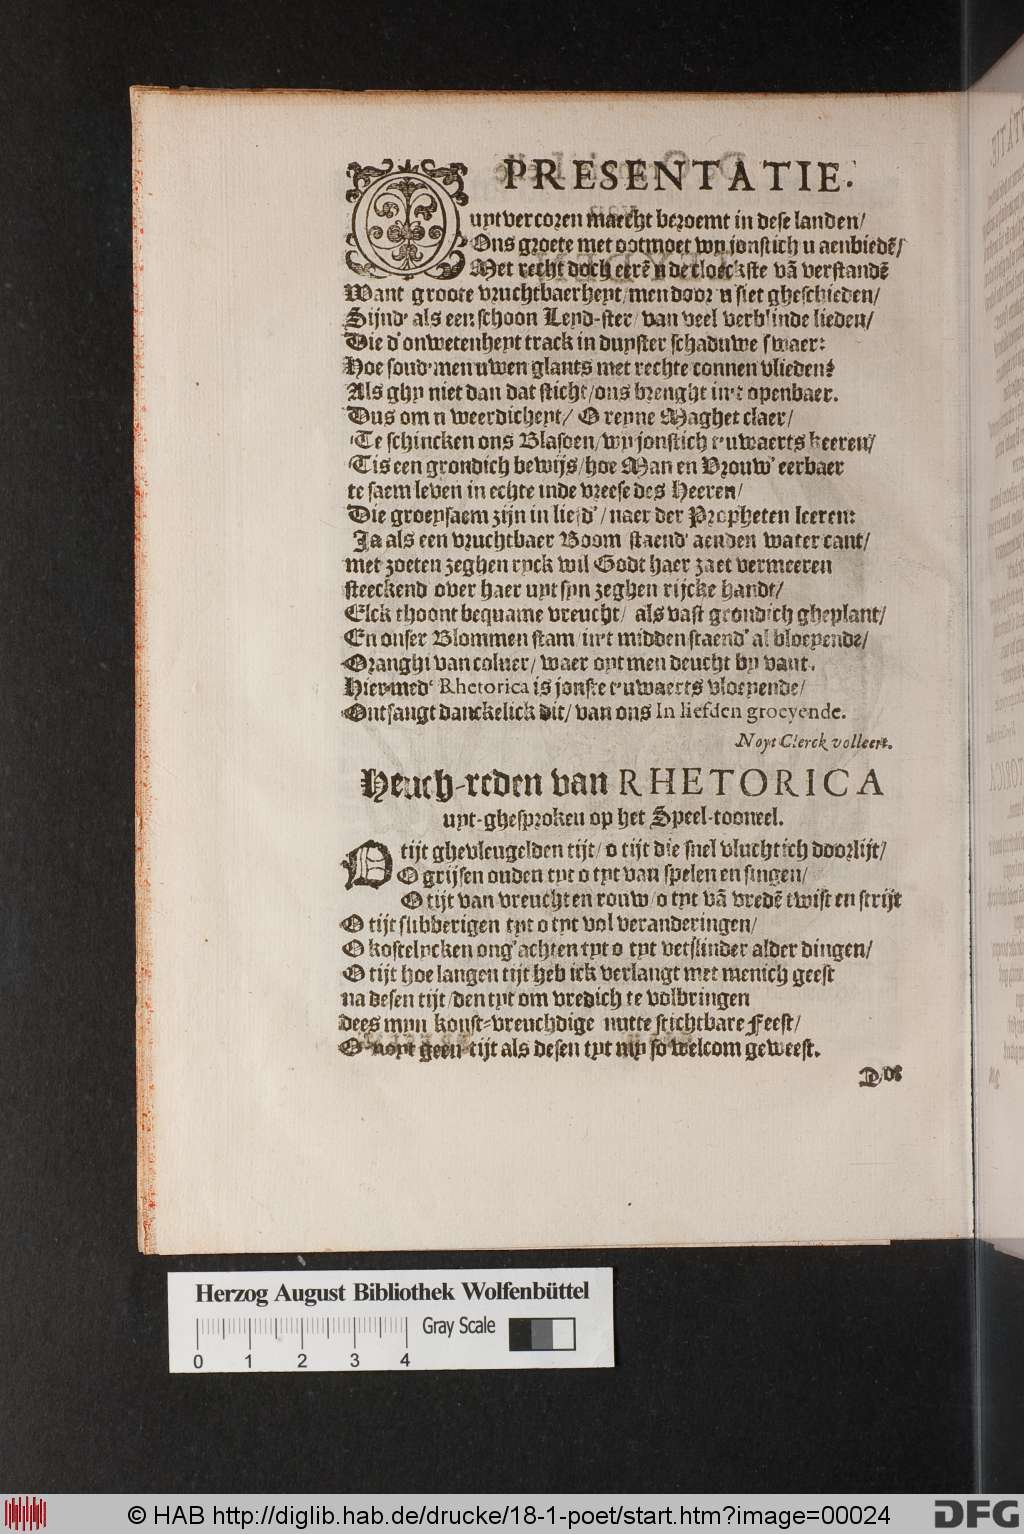 PRESENTATIE.
O uytvercoren maecht beroemt in dese landen/
Ons groete met ootmoet wy jonstich u aenbiedē/
Met recht doch eerē u de cloeckste vā verstandē
Want groote vruchtbaerheyt/men door u siet gheschieden/
Sijnd' als een schoon Leyd-ster/ van veel verblinde lieden/
Die d'onwetenheyt track in duyster schaduwe swaer:
Hoe soud' men uwen glants met rechte connen vlieden?
Als ghy niet dan dat sticht/ons brenght in't openbaer.
Dus om u weerdicheyt/ O reyne Maghet claer/
Te schincken ons Blasoen/wy jonstich t'uwaerts keeren/
Tis een grondich bewijs/hoe Man en Vrouw' eerbaer
te saem leven in echte inde vreese des Heeren/
Die groeysaem zijn in liefd'/naer der Propheten leeren:
Ja als een vruchtbaer Boom staend' aenden water cant/
met zoeten zeghen ryck wil Godt haer zaet vermeeren
steeckend over haer uyt syn zeghen rijcke handt/
Elck thoont bequame vreucht/ als vast grondich gheplant/
En onser Blommen stam in't midden staend' al bloeyende/
Oranghi van coluer/ waer oyt men deucht by vant.
Hier med' Rhetorica is jonste t'uwaerts vloeyende/
Ontfangt danckelick dit/ van ons In liefden groeyende.
Noyt Clerck volleert.
Heuch-reden van RHETORICA
uyt-ghesproken op het Speel-tooneel.
O tijt ghevleugelden tijt/o tijt die snel vluchtich doorlijt/
O grijsen ouden tyt o tyt van spelen en singen/
O tijt van vreucht en rouw/o tyt vā vredē twist en strijt
O tijt slibberigen tyt o tyt vol veranderingen/
O kostelycken ong'achten tyt o tyt verslinder alder dingen/
O tijt hoe langen tijt heb ick verlangt met menich geest
na desen tijt/den tyt om vredich te volbringen
dees myn konst-vreuchdige nutte stichtbare Feest/
O noyt geen tijt als desen tyt my so welcom geweest.
Herzog August Bibliothek Wolfenbüttel
Gray Scale
0 1 2 3 4
© HAB http://diglib.hab.de/drucke/18-1-poet/start.htm?image=00024
DFG